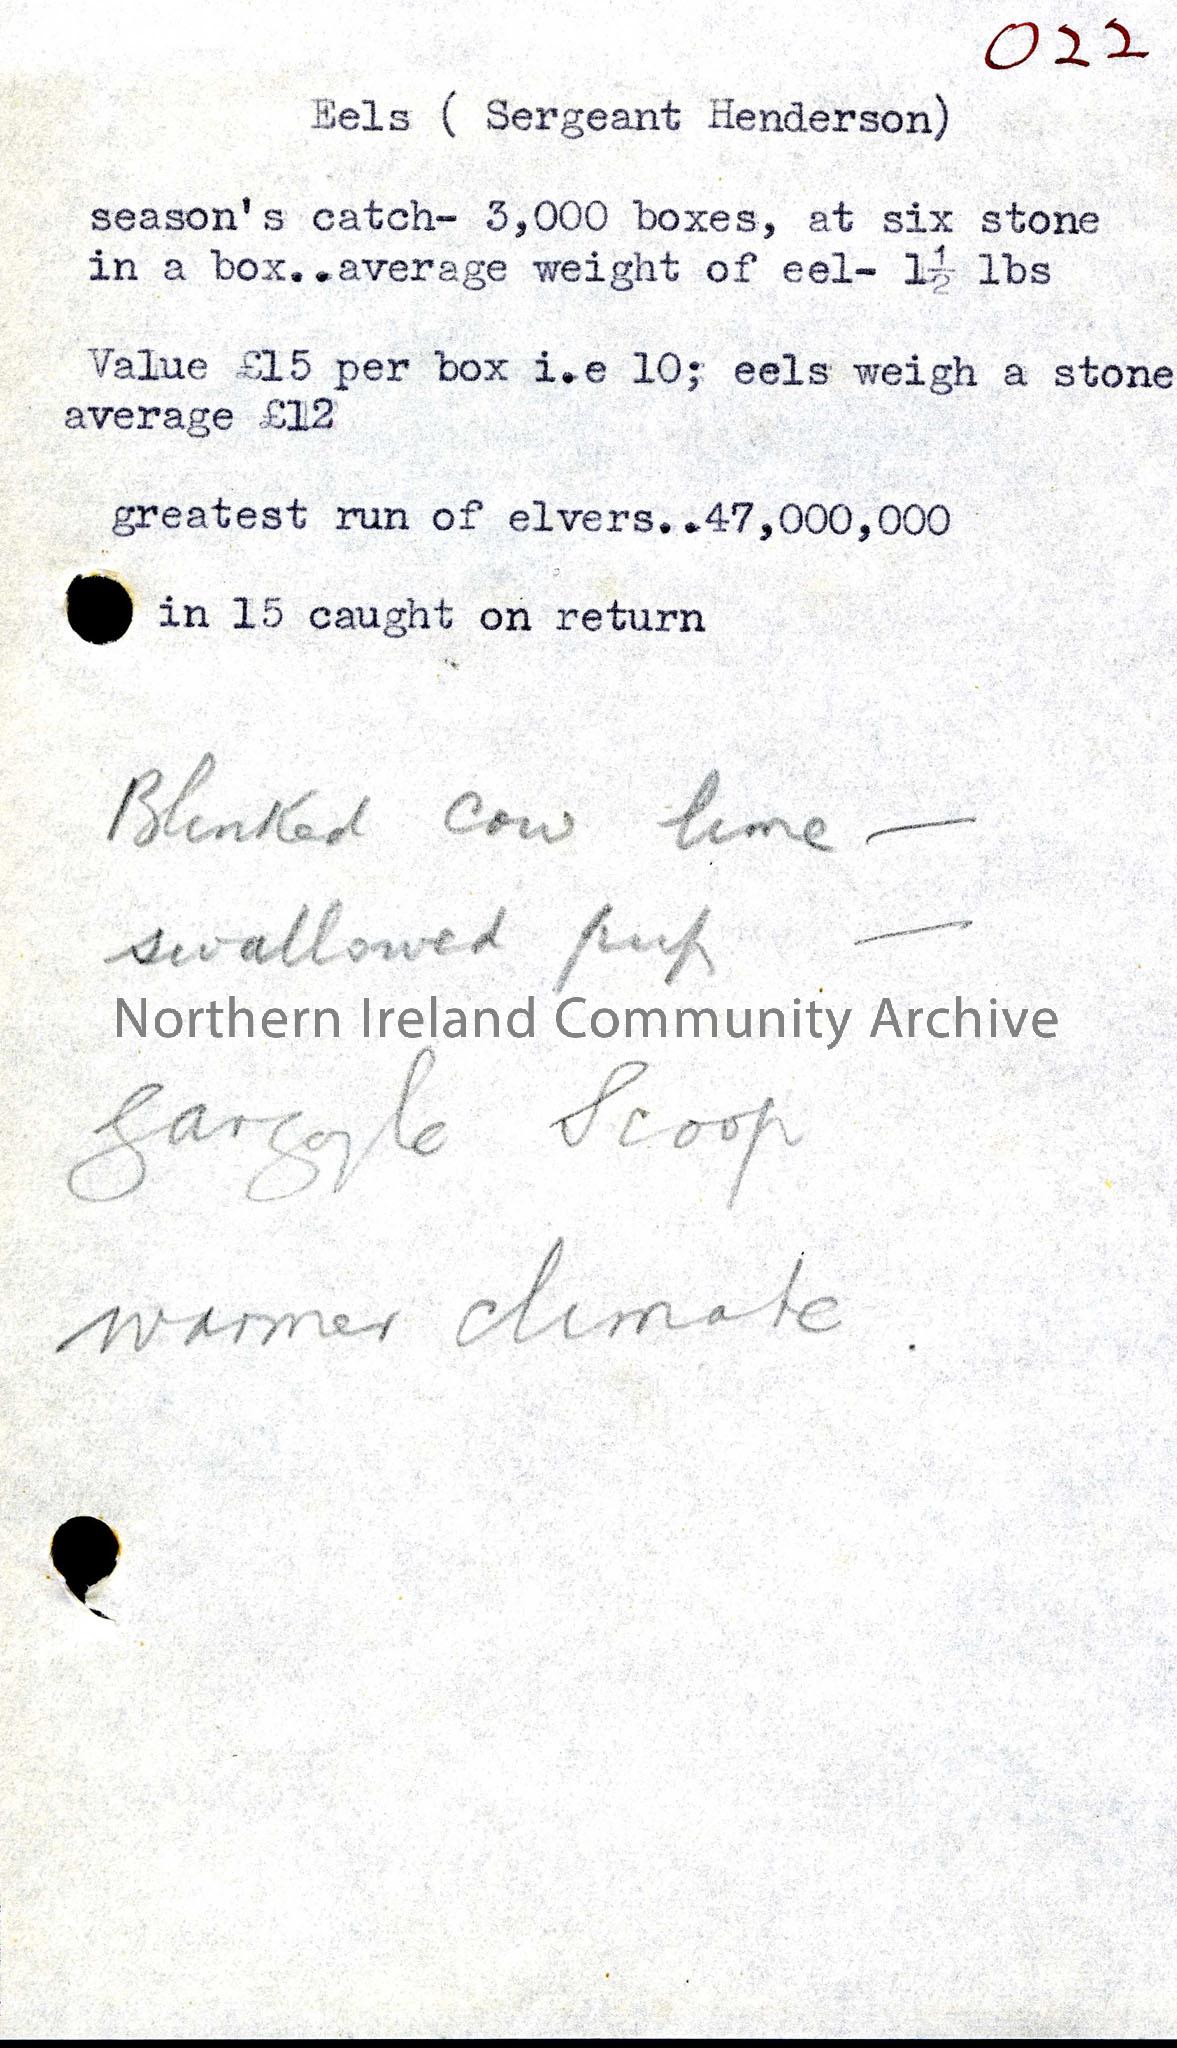 022
Eels ( Sergeant Henderson)
season's catch- 3,000 boxes, at six stone
in a box..average weight of eel- 1½ lbs
Value £15 per box i.e 10; eels weigh a stone
average £12
greatest run of elvers..47,000,000
in 15 caught on return
Blinked cow lime —
swallowed pup —
Northern Ireland Community Archive
gargoyle Scoop
warmer climate .